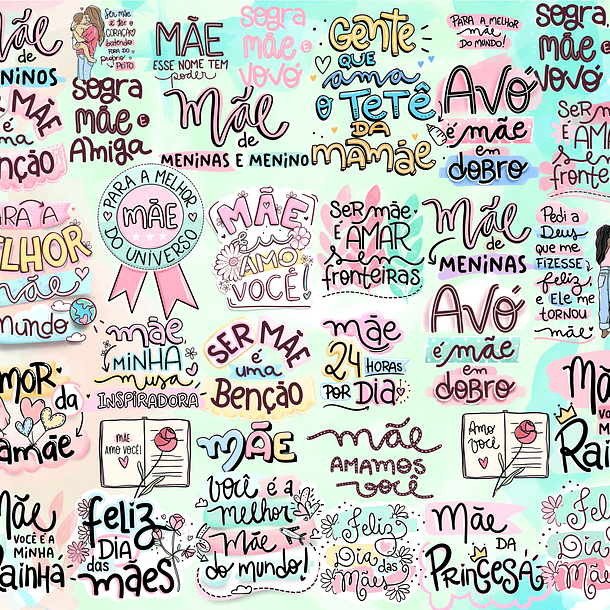 Mãe
de
MENINOS
Ser mãe
é ter o
CORAÇÃO
batendo
FORA DO
próprio
PEITO
MÃE
ESSE NOME TEM
poder
Sogra
mãe e
vovó
Gente
QUE
ama
O TETÊ
DA
MAMÃE
PARA A MELHOR
mãe
DO MUNDO!
Sogra
mãe e
vovó
SER MÃE
é
uma
Benção
Sogra
mãe e
Amiga
Mãe
de
MENINAS E MENINO
Avó
é mãe
em
dobro
Ser mãe
É AMAR
sem
fronteiras
PARA A
MELHOR
mãe
do mundo
PARA A MELHOR
MÃE
DO UNIVERSO
MÃE
eu
AMO
VOCÊ!
Ser mãe
É AMAR
sem
fronteiras
Mãe
de
MENINAS
Pedi a
Deus
que me
FIZESSE
feliz,
e ELE me
TORNOU
mãe
mãe
MINHA
musa
INSPIRADORA
SER MÃE
é
uma
Benção
mãe
24 HORAS
POR DIA
Avó
é mãe
em
dobro
AMOR
da
mamãe
MÃE
AMO VOCÊ!
MÃE
Você é a
melhor
Mãe
do mundo!
mãe
AMAMOS
você
Amo
você
Mãe
VOCÊ É A
MINHA
Rainha
Mãe
VOCÊ É A
MINHA
Rainha
feliz
DIA
das
mães
Feliz
Dia
das
Mães
Mãe
DA
PRINCESA
Feliz
Dia
das
Mães